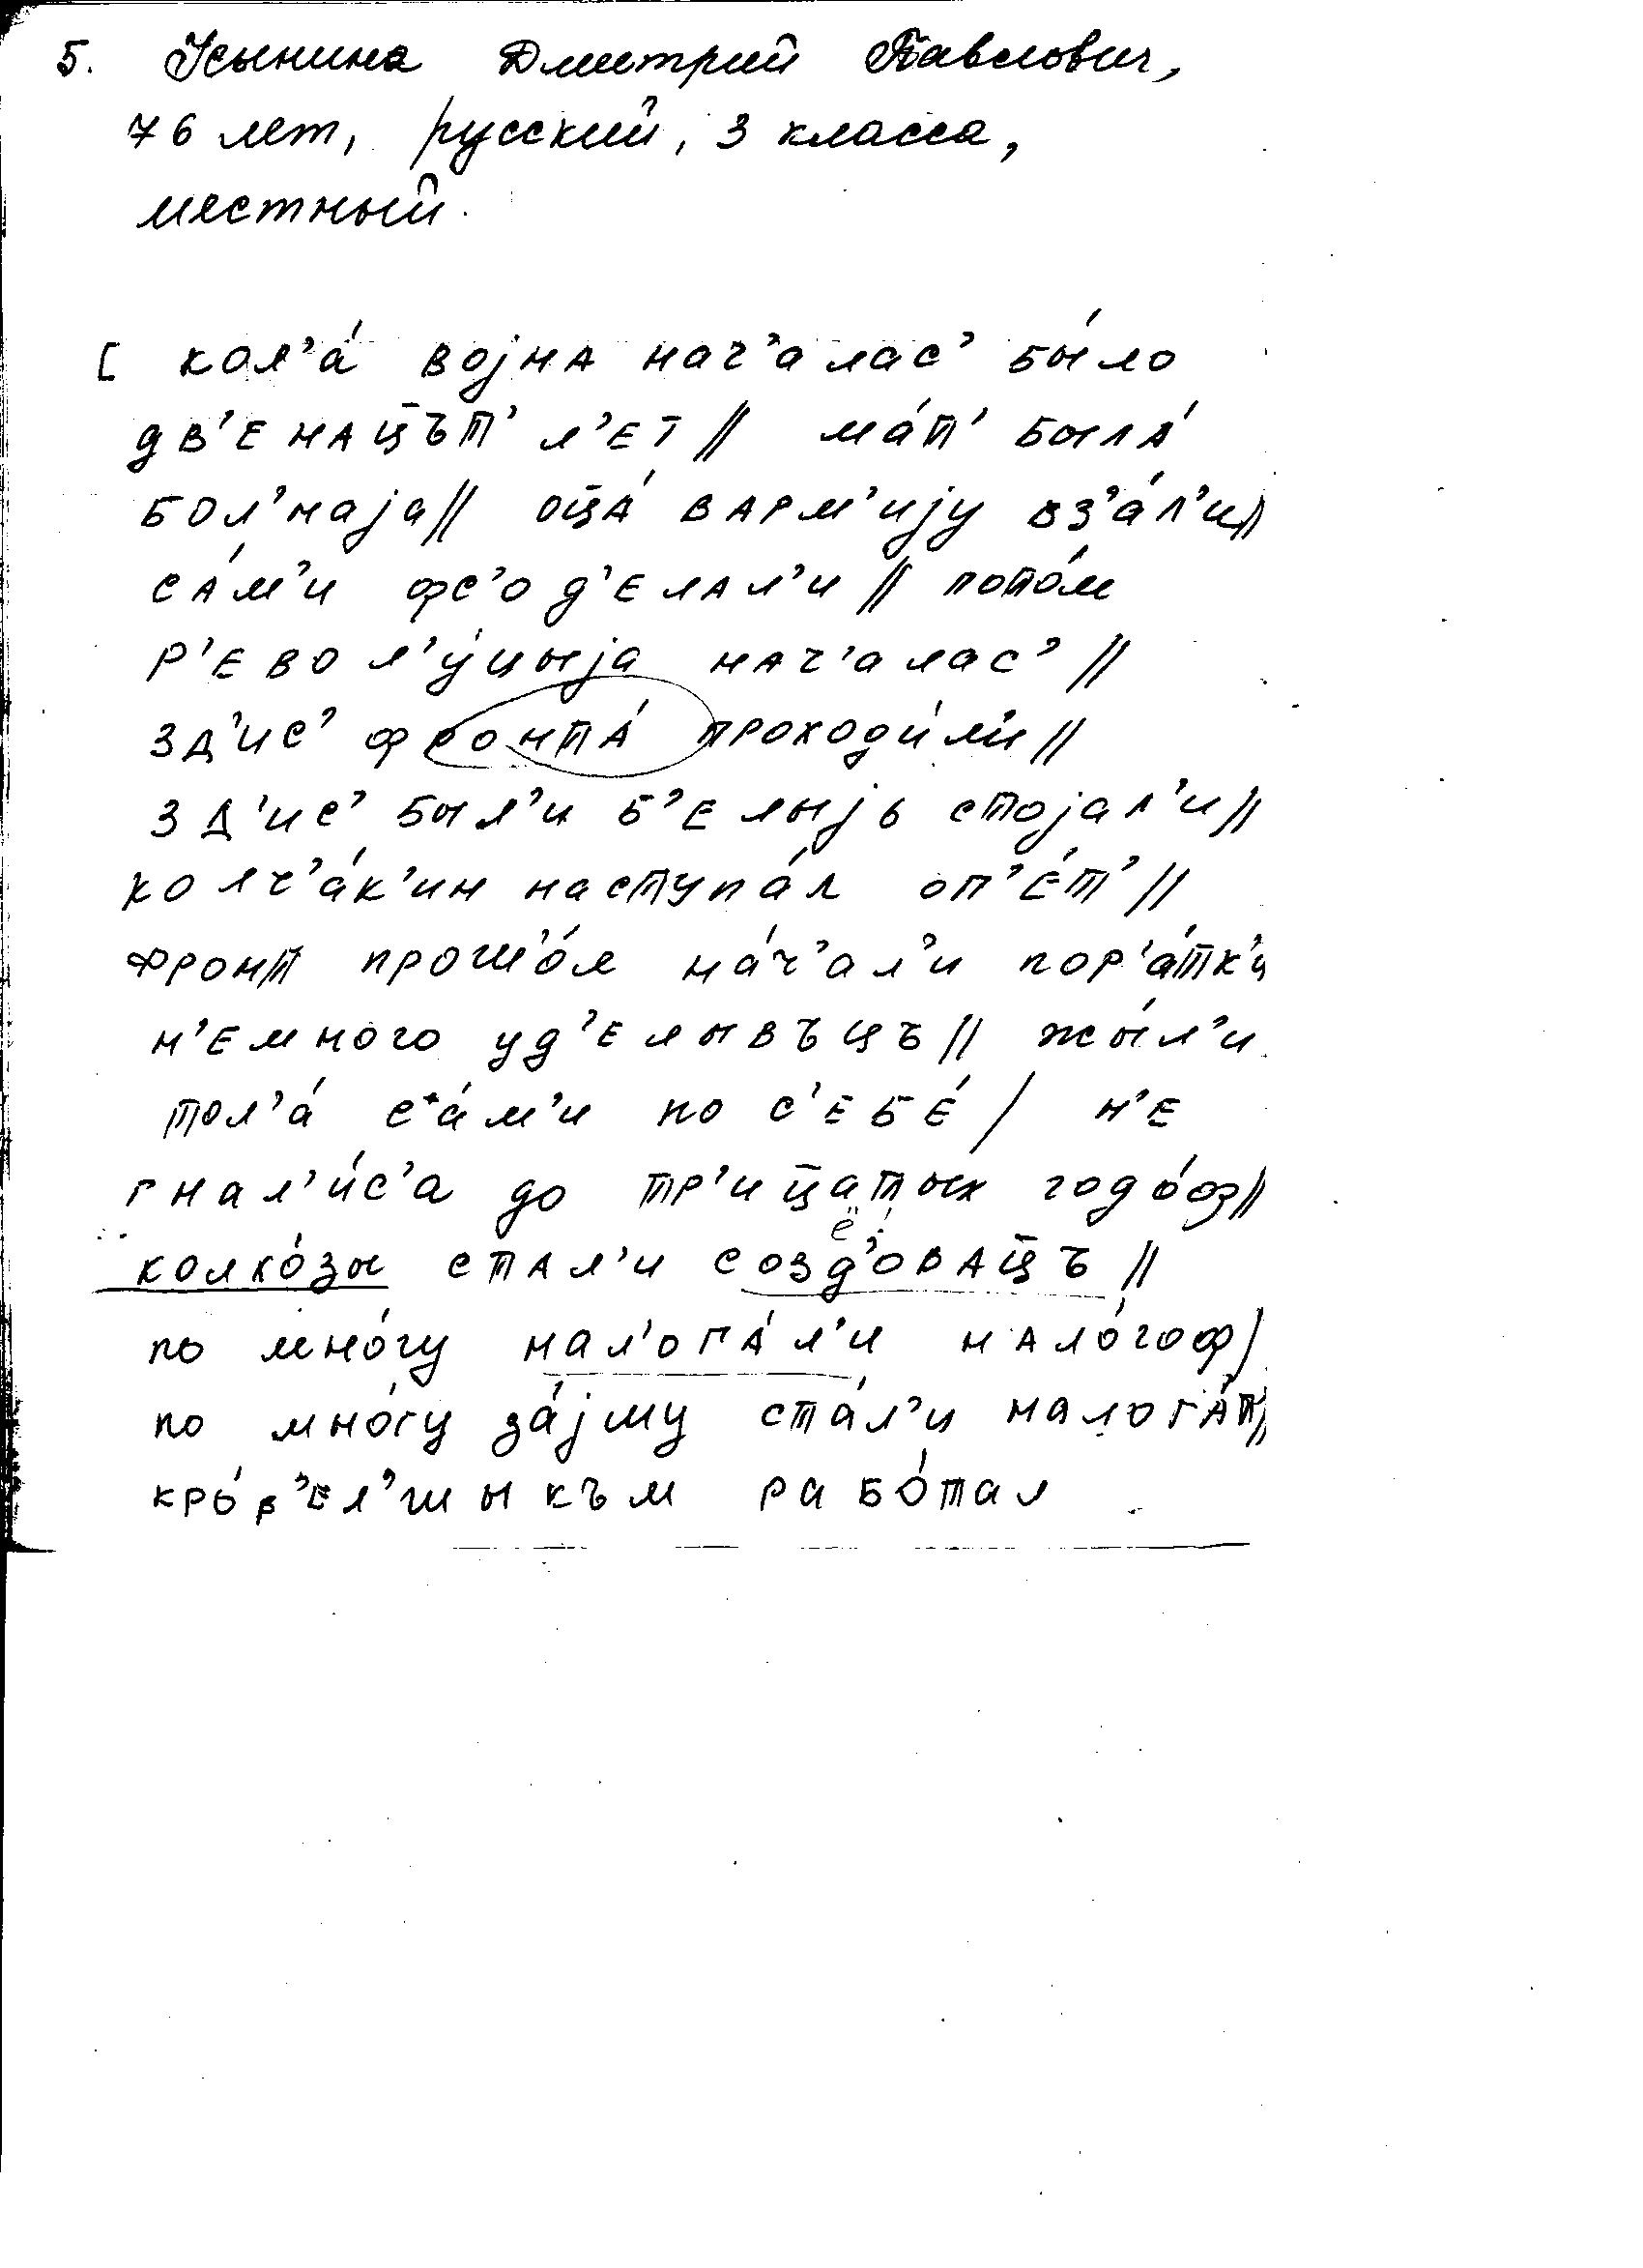 5. Усынина Дмитрий Павлович,
76 лет, русский, 3 класса,
местный.
[ кол’а́ војна нач’алас’ бы́ло
дв’енац̄ът’ л’ет // ма́т’ была́
бол’наја // оц̄а́варм’ију вз’а́л’и //
са́м’и фс’о д’елал’и // пото́м
р’евол’у́цыја нач’алас’ //
зд’ис’ фронта́ проходи́л’и //
зд’ис’ был’и б’елыјь стојал’и //
колч’а́к’ин наступа́л оп’е́т’ //
фронт прош’о́л на́ч’ал’и пор’а́тк’и
н’емного уд’елывъцъ // жы́л’и
тол’а́ са́м’и по с’ебе́ / н’е
гнал’и́с’а до тр’иц̄атых годо́ф //
колхо́зы стал’и созд’овац̄ъ //
по мно́гу нал’ога́л’и нало́гоф /
по мно́гу за́јму ста́л’и налога́т’ //
кро́в’ел’шыкъм рабо́тал